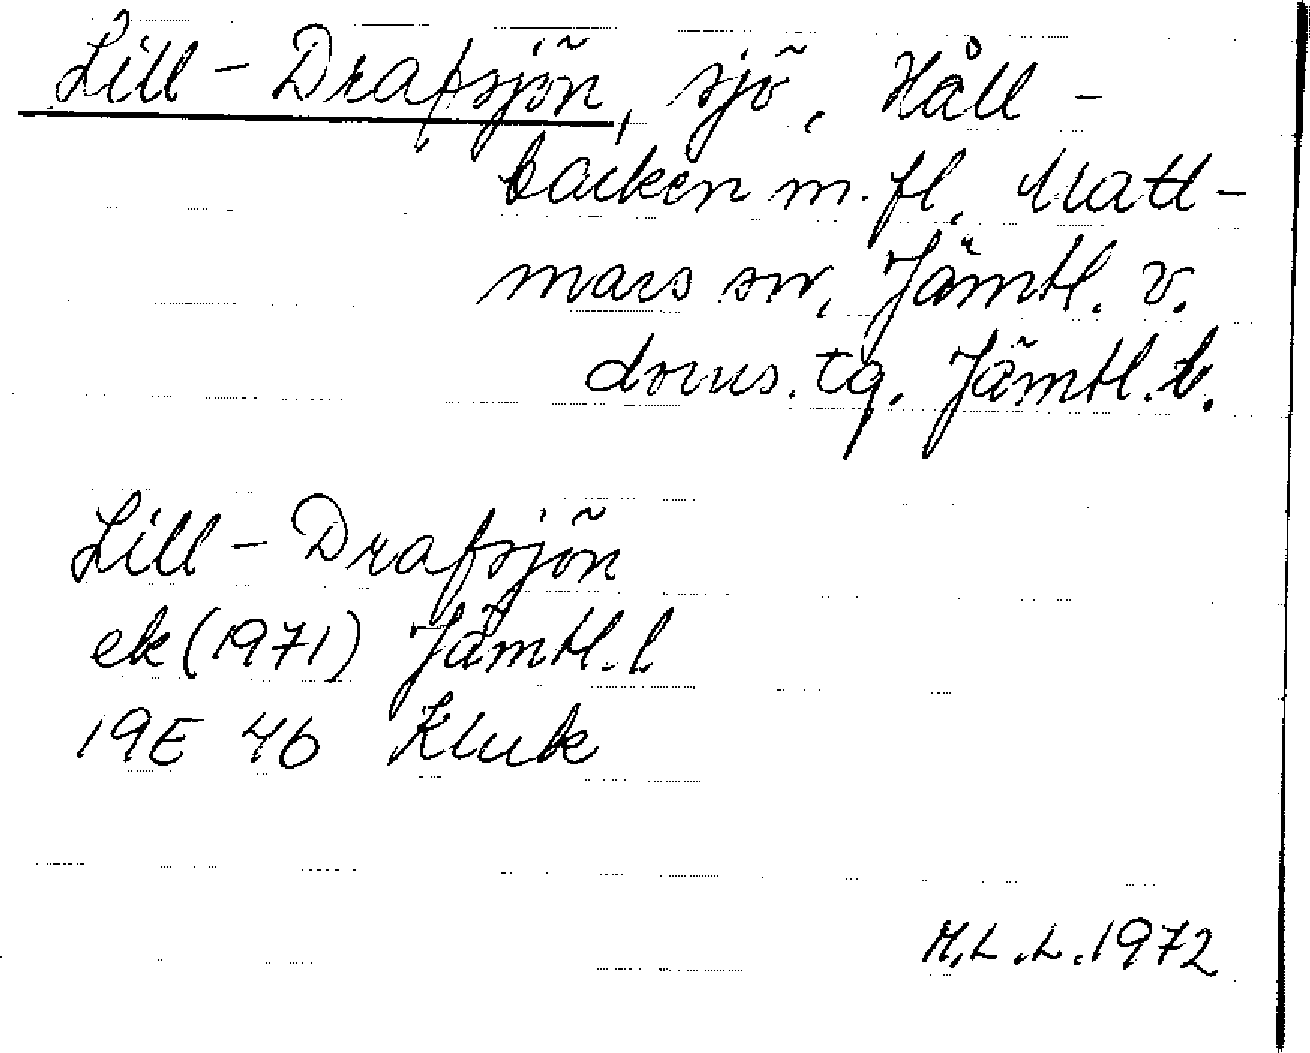 Lill-Drafsjön, sjö, Håll-
backen m. fl. Matt-
mars sn, Jämtl. v.
doms. tg. Jämtl. l.
Lill-Drafsjön
ek (1971) Jämtl. l
19E 4b Kluk
M.L.L. 1972